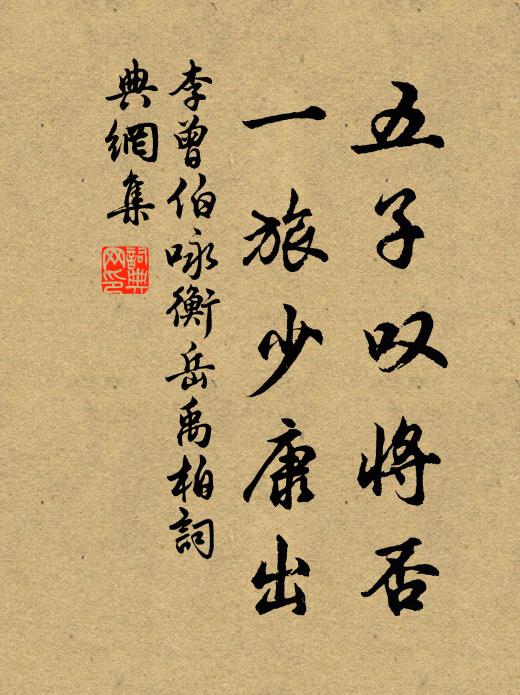 五子叹将否
一旅少康出
李曾伯咏衡岳禹柏詞
典網集
詞典網印